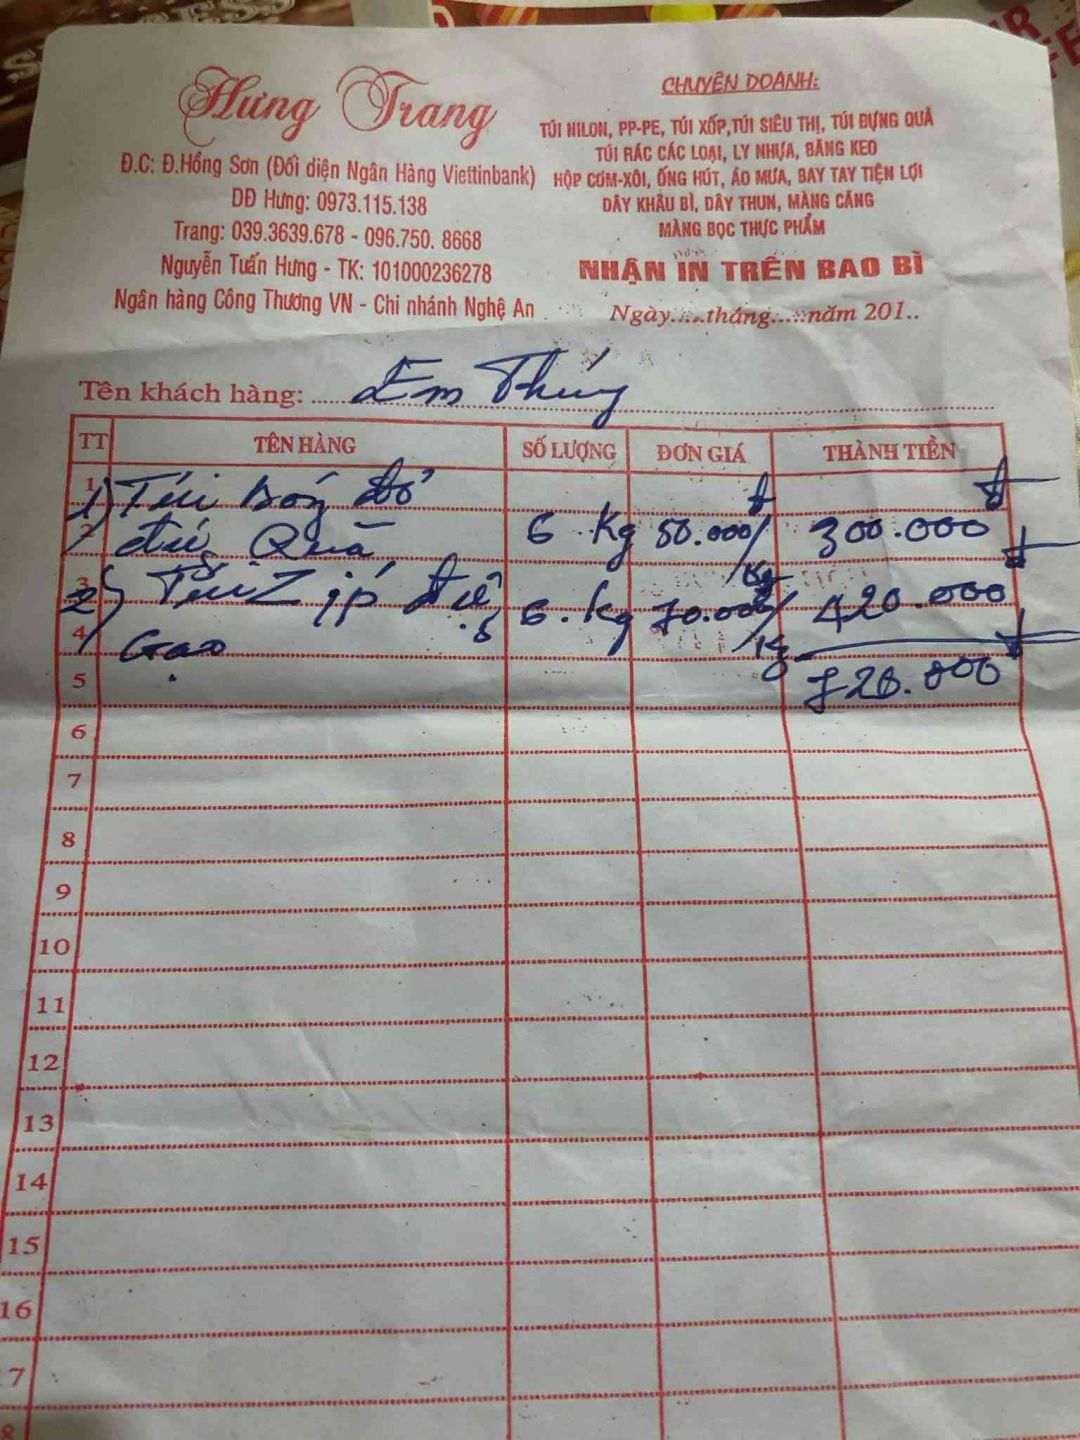 Hưng Trang
Đ.C: Đ.Hồng Sơn (Đối diện Ngân Hàng Viettinbank)
DĐ Hưng: 0973.115.138
Trang: 039.3639.678 - 096.750. 8668
Nguyễn Tuấn Hưng - TK: 101000236278
Ngân hàng Công Thương VN - Chi nhánh Nghệ An
CHUYÊN DOANH:
TÚI NILON, PP-PE, TÚI XỐP,TÚI SIÊU THỊ, TÚI ĐỰNG QUÀ
TÚI RÁC CÁC LOẠI, LY NHỰA, BĂNG KEO
HỘP CƠM-XÔI, ỐNG HÚT, ÁO MƯA, BAY TAY TIỆN LỢI
DÂY KHÂU BÌ, DÂY THUN, MÀNG CĂNG
MÀNG BỌC THỰC PHẨM
NHẬN IN TRÊN BAO BÌ
Ngày.....tháng.....năm 201..
Tên khách hàng: Em
TT TÊN HÀNG SỐ LƯỢNG ĐƠN GIÁ THÀNH TIỀN
1 1) Túi bóng đỏ đ đ
2 đựng Quà 6 Kg 50.000/Kg 300.000 đ
3 2) Túi Zip đựng 6.Kg 70.000/Kg 420.000
4 Gạo đ
5 720.000
6
7
8
9
10
11
12
13
14
15
16
7
8